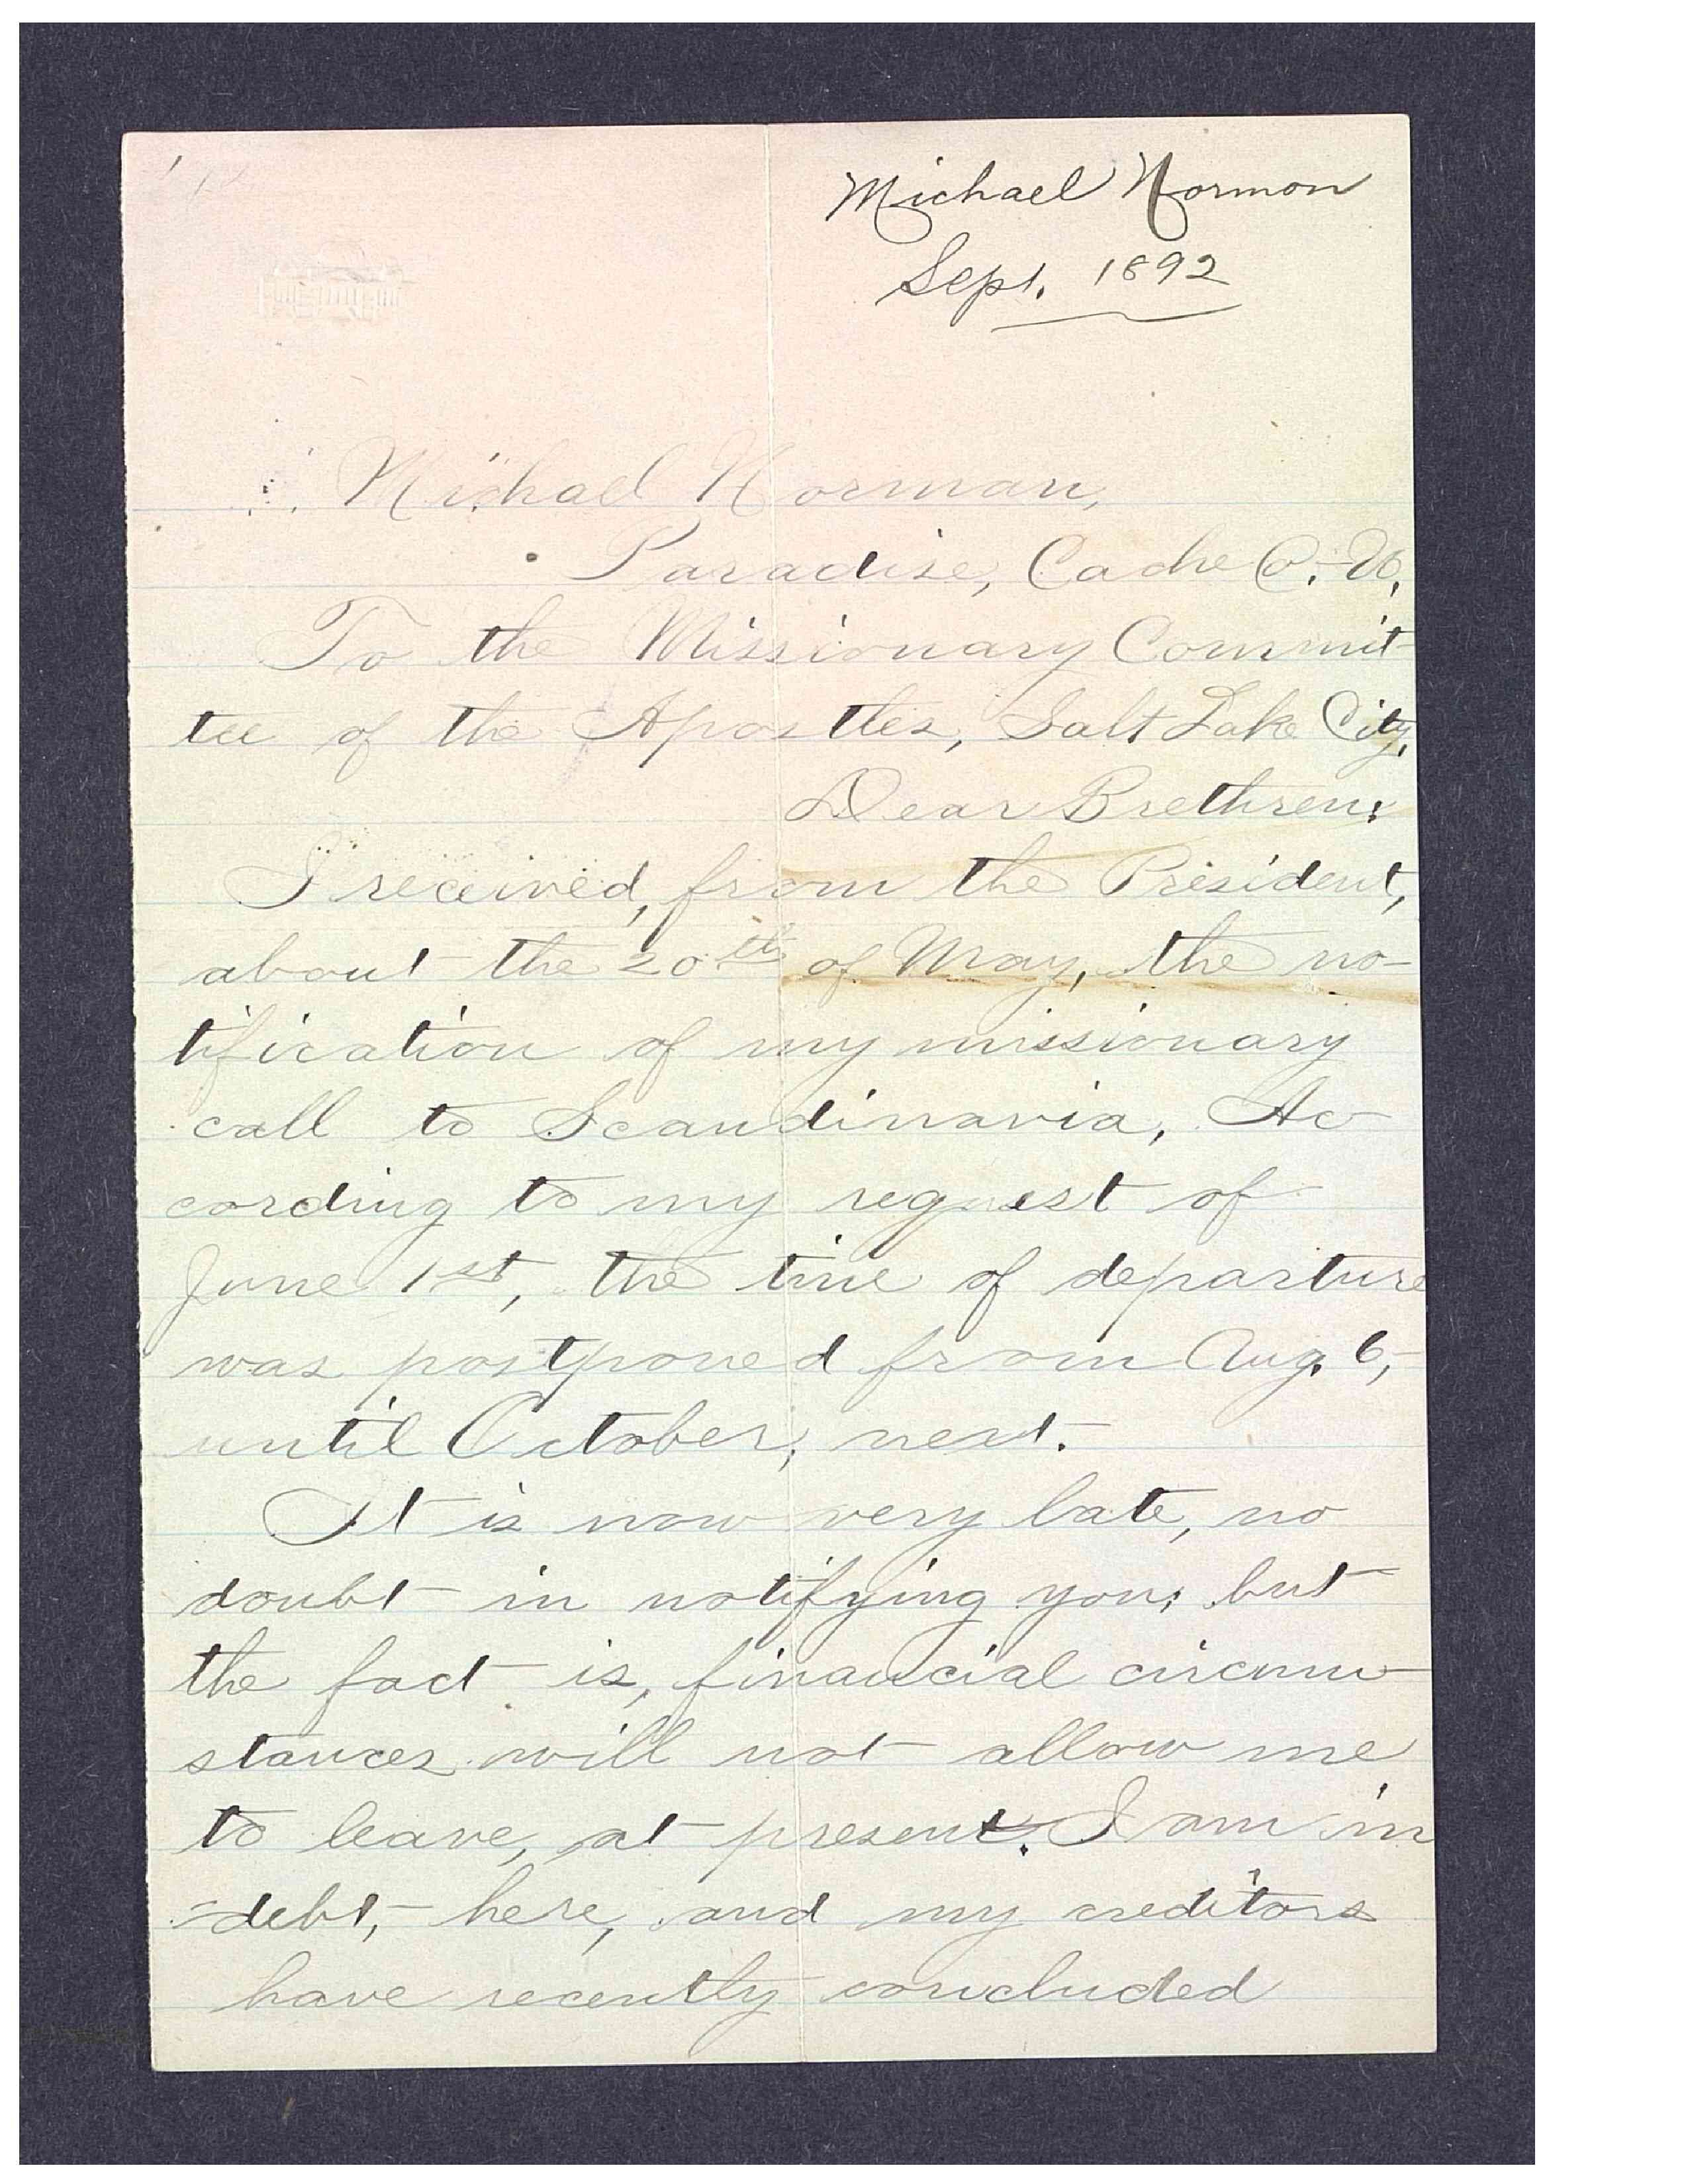 Michael Normon
Sept. 1892
Michael Norman,
Paradise, Cache Co. U.
To the Missionary Commit-
tee of the Apostles, Salt Lake City.
Dear Brethren:
I received, from the President,
about the 20th of May, the no-
tification of my missionary
call to Scandinavia, Ac-
cording to my request of
June 1st, the time of departure
was postponed from Aug. 6,
until October, next.
It is now very late, no
doubt in notifying you; but
the fact is, financial circum-
stances will not allow me
to leave, at present. I am in
debt, here, and my creditors
have recently concluded